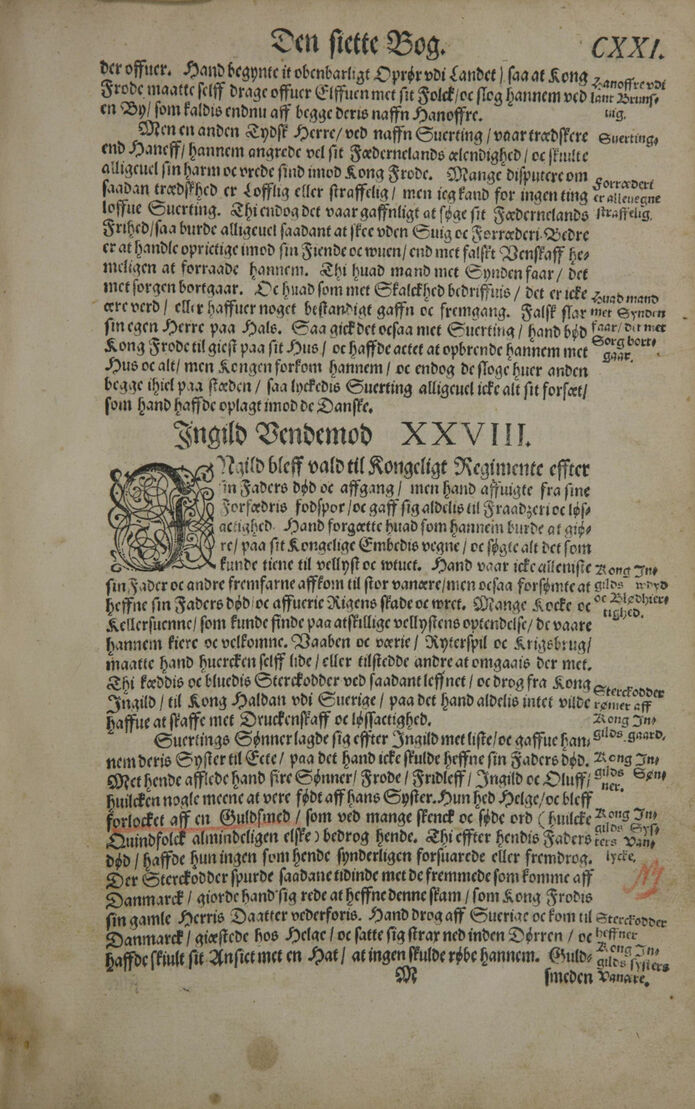 Den siette Bog.
CXXI.
der offuer. Hand begynte it obenbarligt Oprør vdi Landet / saa at Kong
Frode maatte selff drage offuer Elffuen met sit Folck / oc slog hannem ved
en By / som kaldis endnu aff begge deris naffn Hanoffre.
Hanoffre vdi
lant Bruns-
uig.
Men en anden Tydsk Herre / ved naffn Suerting / vaar trædskere
end Haneff / hannem angrede vel sit Fædernelands ælendighed / oc skiulte
alligeuel sin harm oc vrede sind imod Kong Frode. Mange disputere om
saadan trædskhed er Lofflig eller straffelig / men ieg kand for ingen ting
loffue Suerting. Thi endog det vaar gaffnligt at søge sit Fædernelands
Frihed / saa burde alligeuel saadant at skee vden Suig oc Forræderi. Bedre
er at handle oprictige imod sin Fiende oc wuen / end met falskt Venskaff he-
meligen at forraade hannem. Thi huad mand met Synden faar / det
met sorgen bortgaar. Oc huad som met Skalckhed bedriffuis / det er icke
ære verd / eller haffuer noget bestandigt gaffn oc fremgang. Falsk slar
sin egen Herre paa Hals. Saa gick det ocsaa met Suerting / hand bød
Kong Frode til giest paa sit Hus / oc haffde actet at opbrende hannem met
Hus oc alt / men Kongen forkom hannem / oc endog de sloge huer anden
begge ihiel paa stæden / saa lyckedis Suerting alligeuel icke alt sit forsæt /
som hand haffde oplagt imod de Danske.
Suerting.
Forræderi
er alleuegne
straffelig.
Huad mand
met Synden
faar / det met
Sorg bort-
gaar.
Ingild Vendemod XXVIII.
INgild bleff vald til Kongeligt Regimente effter
sin Faders død oc affgang / men hand affuigte fra sine
Forfædris fodspor / oc gaff sig aldelis til Fraadzeri oc løs-
actighed. Hand forgætte huad som hannem burde at giø-
re / paa sit Kongelige Embedis vegne / oc søgte alt det som
kunde tiene til vellyst oc wtuct. Hand vaar icke alleniste
sin Fader oc andre fremfarne affkom til stor vanære / men ocsaa forsømte at
heffne sin Faders død / oc affuerie Rigens skade oc wret. Mange Kocke oc
Kellersuenne / som kunde finde paa atskillige vellystens optendelse / de vaare
hannem kiere oc velkomne. Vaaben oc værie / Ryterspil oc Krigsbrug /
maatte hand huercken selff lide / eller tilstedde andre at omgaais der met.
Thi kæddis oc bluedis Sterckodder ved saadant leffnet / oc drog fra Kong
Ingild / til Kong Haldan vdi Suerige / paa det hand aldelis intet vilde
haffue at skaffe met Druckenskaff oc løssactighed.
Kong In-
gilds
oc Blødhier-
tighed.
Sterckodder
rømer aff
Kong In-
gilds gaard.
Suertings Sønner lagde sig effter Ingild met liste / oc gaffue han-
nem deris Syster til Ecte / paa det hand icke skulde heffne sin Faders død.
Met hende afflede hand fire Sønner / Frode / Fridleff / Ingild oc Oluff /
huilcken nogle meene at vere født aff hans Syster. Hun hed Helge / oc bleff
forlocket aff en Guldsmed / som ved mange skenck oc søde ord (huilcke
Quindfolck almindeligen elske) bedrog hende. Thi effter hendis Faders
død / haffde hun ingen som hende synderligen forsuarede eller fremdrog.
Der Sterckodder spurde saadane tidinde met de fremmede som komme aff
Danmarck / giorde hand sig rede at heffne denne skam / som Kong Frodis
sin gamle Herris Daatter vederforis. Hand drog aff Suerige oc kom til
Danmarck / giæstede hos Helge / oc satte sig strax ned inden Dørren / oc
haffde skiult sit Ansict met en Hat / at ingen skulde røbe hannem. Guld-
Kong In-
gilds Søn-
ner.
Kong In-
gilds Sys-
ters Van-
lycke.
Sterckodder
heffner
Kong In-
gilds systers
Vanære.
M
smeden